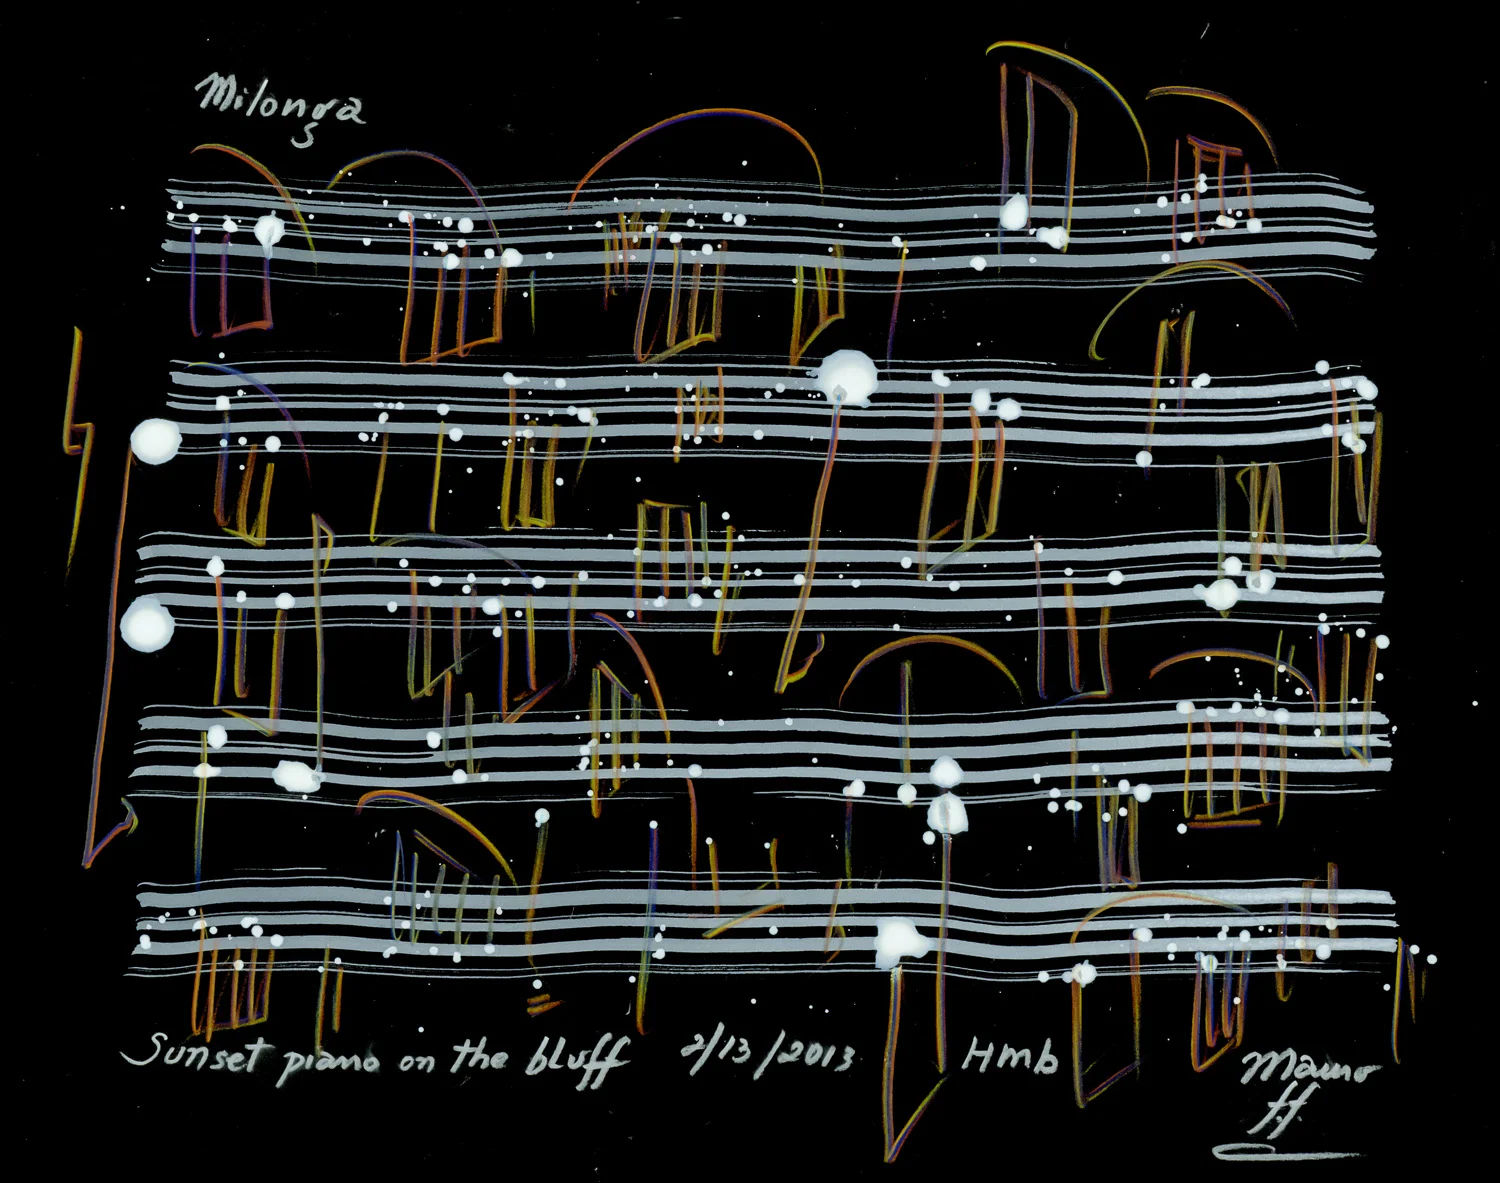 Milonga
Sunset piano on the bluff 2/13/2013 Hmb Mauro
ff